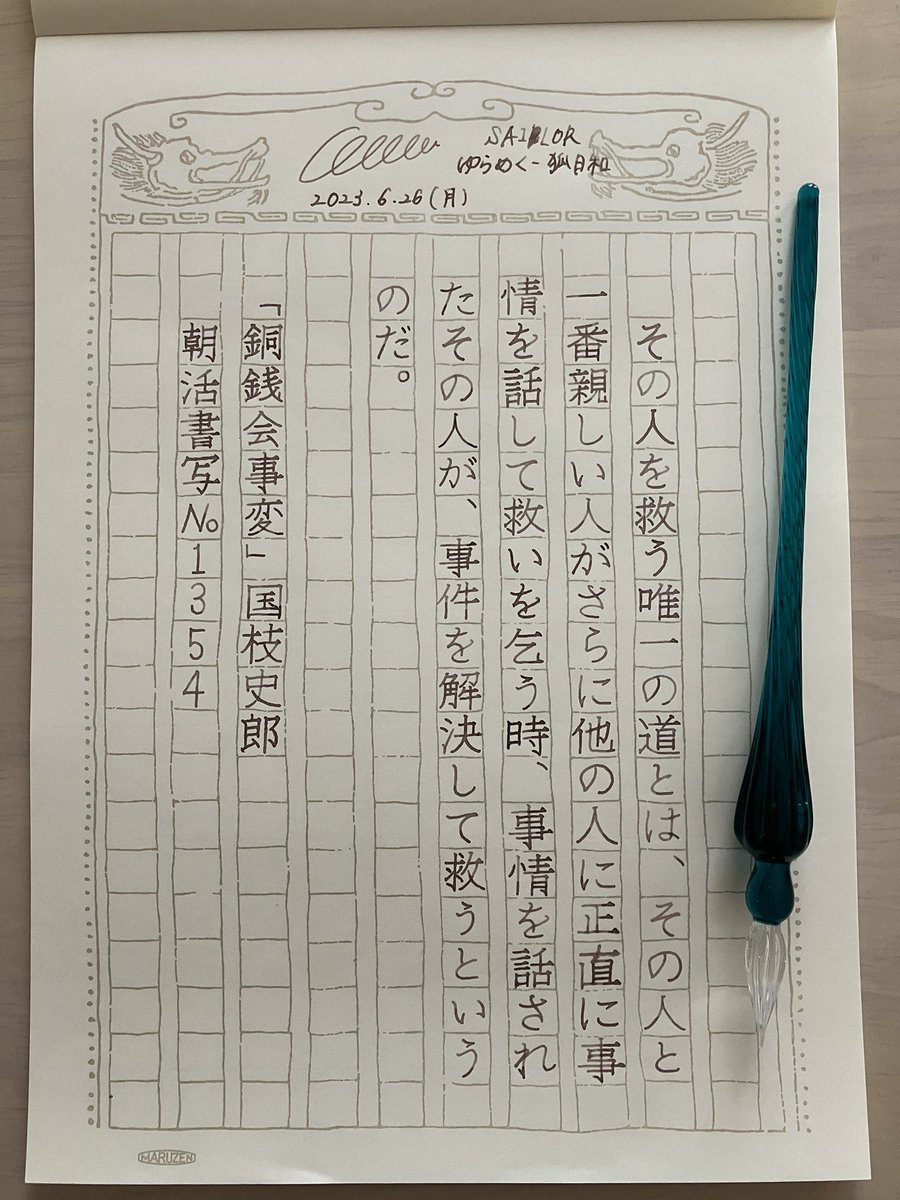 SAILOR
ゆらめく一狐日和
2023.6.26(月)
その人を救う唯一の道とは、その人と
一番親しい人がさらに他の人に正直に事
情を話して救いを乞う時、事情を話され
たその人が、事件を解決して救うという
のだ。
「銅銭会事変」国枝史郎
朝活書写No1354
MARUZEN